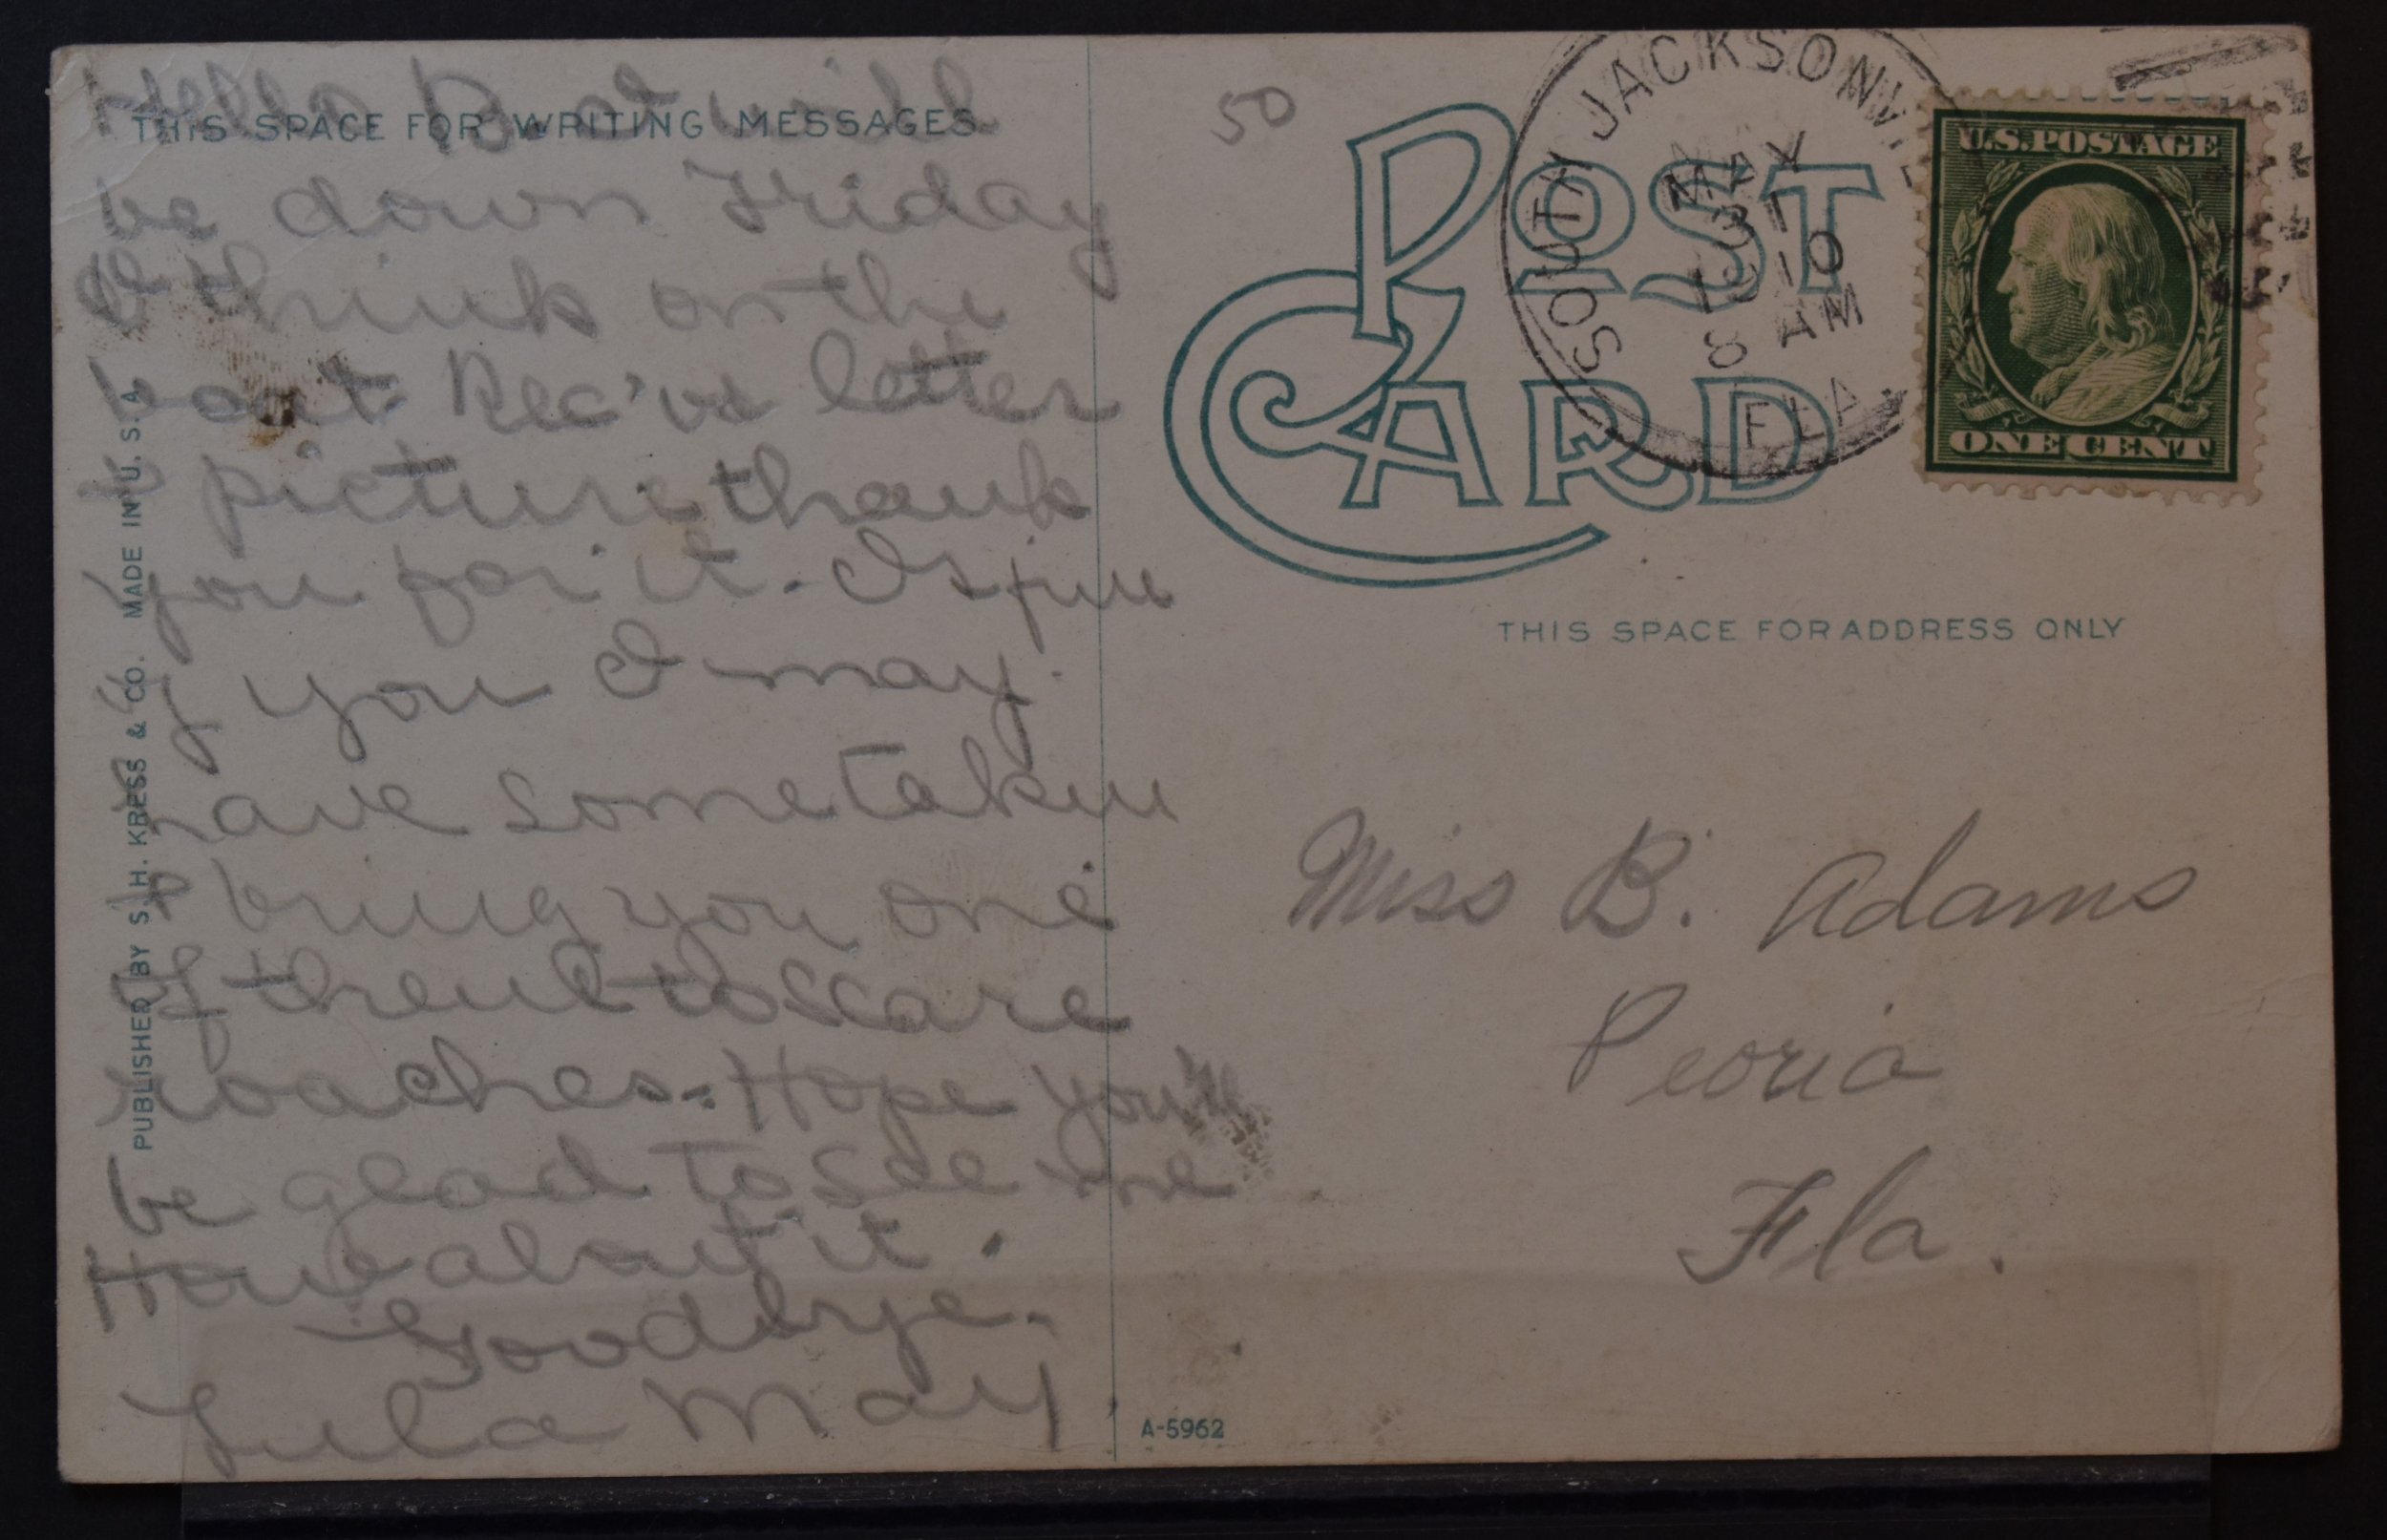 THIS SPACE FOR WRITING MESSAGES
Hello B at will
be down Friday
I think on the
boat. Rec've letter
& picture thank
you for it. It's just
of you I may
have some taken
& bring you one
of them to scare
roaches. Hope you'll
be glad to see me
How about it.
Goodbye.
Lula May.
PUBLISHED BY S. H. KRESS & CO. MADE IN U. S. A.
50
POST
CARD
SOUTH JACKSONVILLE
MAY
31
1910
8 AM
FLA.
U.S. POSTAGE
ONE CENT
THIS SPACE FOR ADDRESS ONLY
Miss B. Adams
Peoria
Fla.
A-5962